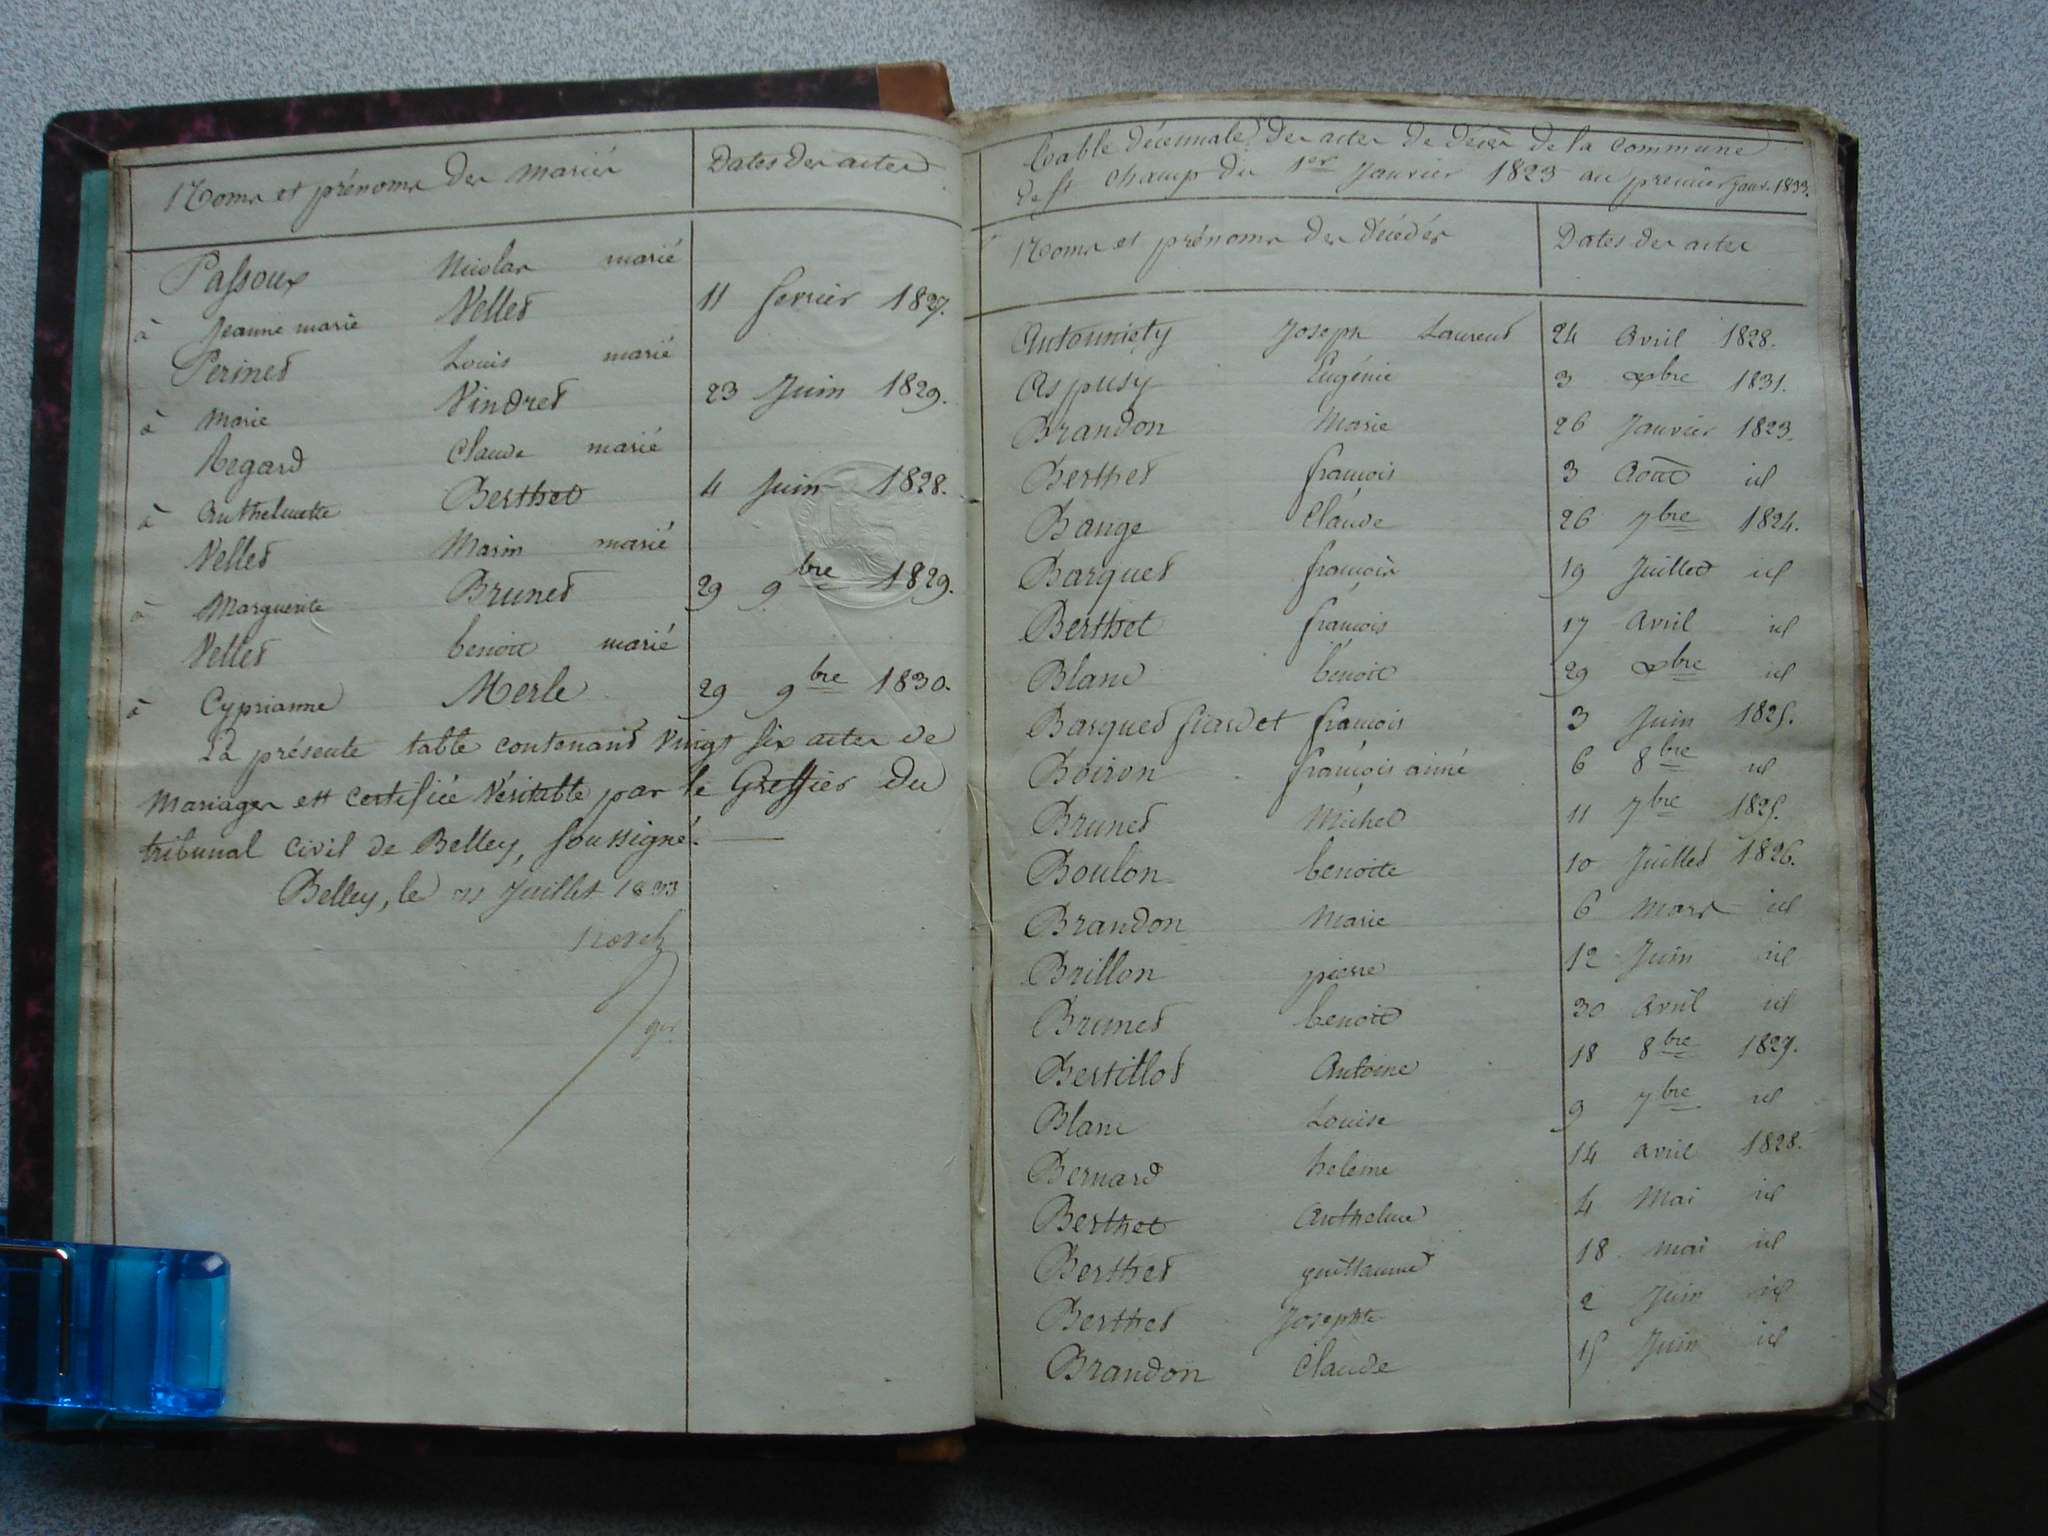 Noms et prénoms des mariés Dates des actes
Passoux Nicolas marié
à Jeanne marie Vellet 11 fevrier 1827.
Perinet Louis marié
à Marie Vindret 23 Juin 1829.
Regard Claude marié
à Anthelmette Berthet 4 Juin 1828.
Vellet Marin marié
à Marguerite Brunet 29 9bre 1829.
Vellet benoit marié
à Cyprianne Merle 29 9bre 1830.
La présente table contenant Vingt six actes de
Mariages est certifiée Véritable par le Greffier du
tribunal Civil de Belley, soussigné.
Belley, le Juillet 1833
Table décennale des actes de décès de la commune
de St champ du 1er Janvier 1823 au premier janv. 1833.
Noms et prénoms des décédés Dates des actes
Antonniety Joseph Laurent 24 Avril 1828.
Aspusy Eugénie 3 xbre 1831.
Brandon Marie 26 Janvier 1823.
Berthet françois 3 Août id
Bange Claude 26 7bre 1824.
Barquet françois 19 Juillet id
Berthet françois 17 Avril id
Blanc benoit 29 xbre id
Barquet françois 3 Juin 1825.
Boiron françois ainé 6 8bre id
Brunet Michel 11 7bre 1825.
Boulon benoite 10 Juillet 1826.
Brandon Marie 6 Mars id
Brillon pierre 12 Juin id
Brunet benoit 30 Avril id
Bertillot Antoine 18 8bre 1827.
Blanc Louise 9 7bre id
Bernard helène 14 avril 1828.
Berthet Anthelme 4 Mai id
Berthet guillaume 18 mai id
Berthet Josephte 2 Juin id
Brandon Claude 15 Juin id